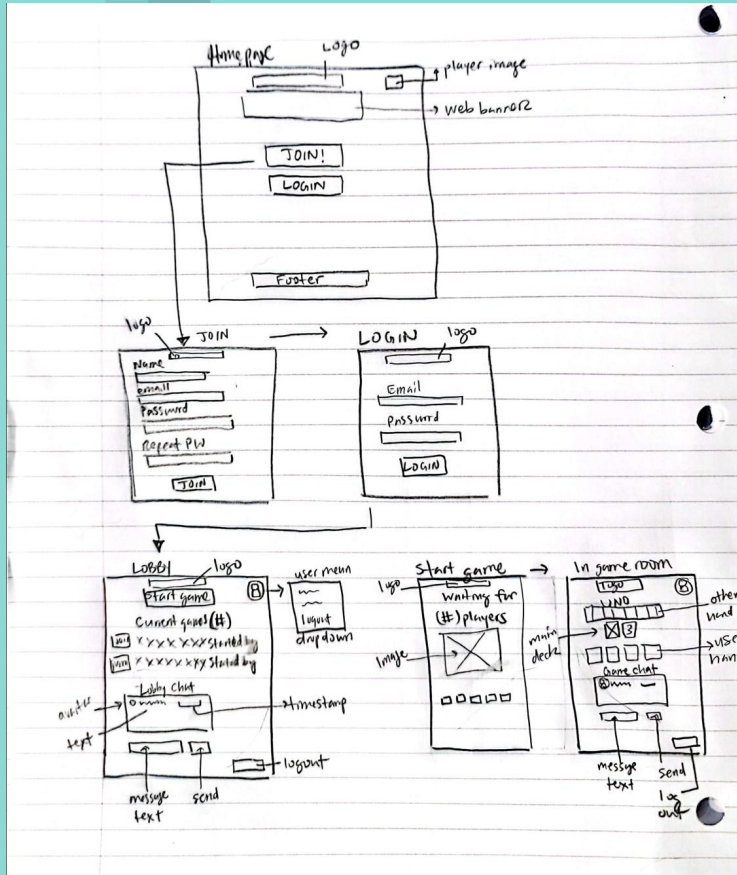 Home page
Logo
player image
web banner
JOIN!
LOGIN
Footer
logo
JOIN
Name
email
Password
Repeat PW
JOIN
LOGIN
logo
Email
Password
LOGIN
LOBBY
logo
start game
current games (#)
join XXXXXXX started by
join XXXXXXXX started by
Lobby chat
text
timestamp
message
text
send
logout
user menu
logout
dropdown
start game
logo
waiting for
(#) players
Image
In game room
logo
UNO
other
hand
main
deck
3
user
hand
Game chat
message
text
send
log
out